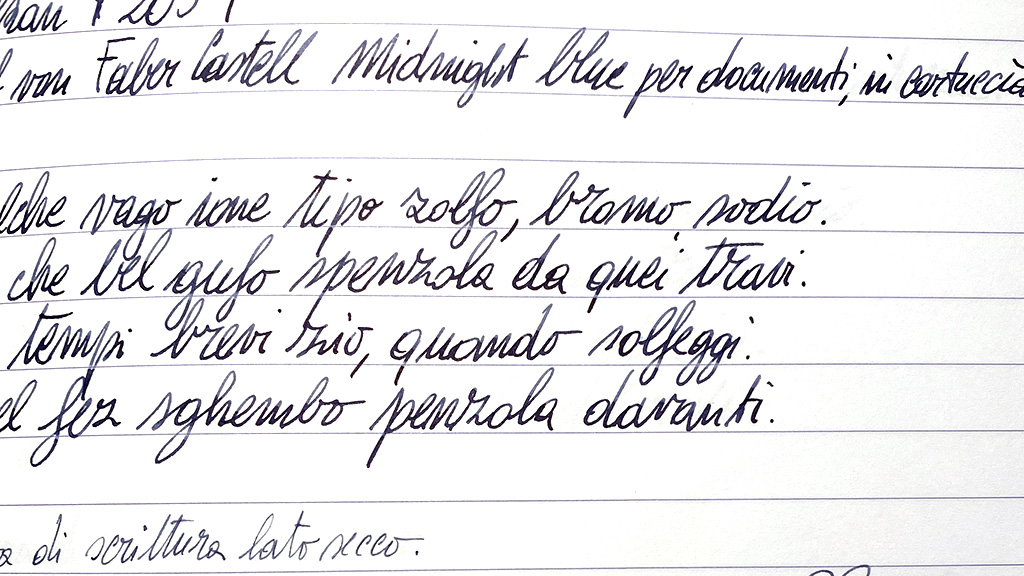 von Faber Castell Midnight blue per documenti, in cartuccia
vago ione tipo zolfo, bromo, sodio.
che bel gufo spenzola da quei travi.
tempi brevi zio, quando solfeggi.
fez sghembo penzola davanti.
di scrittura lato secco.